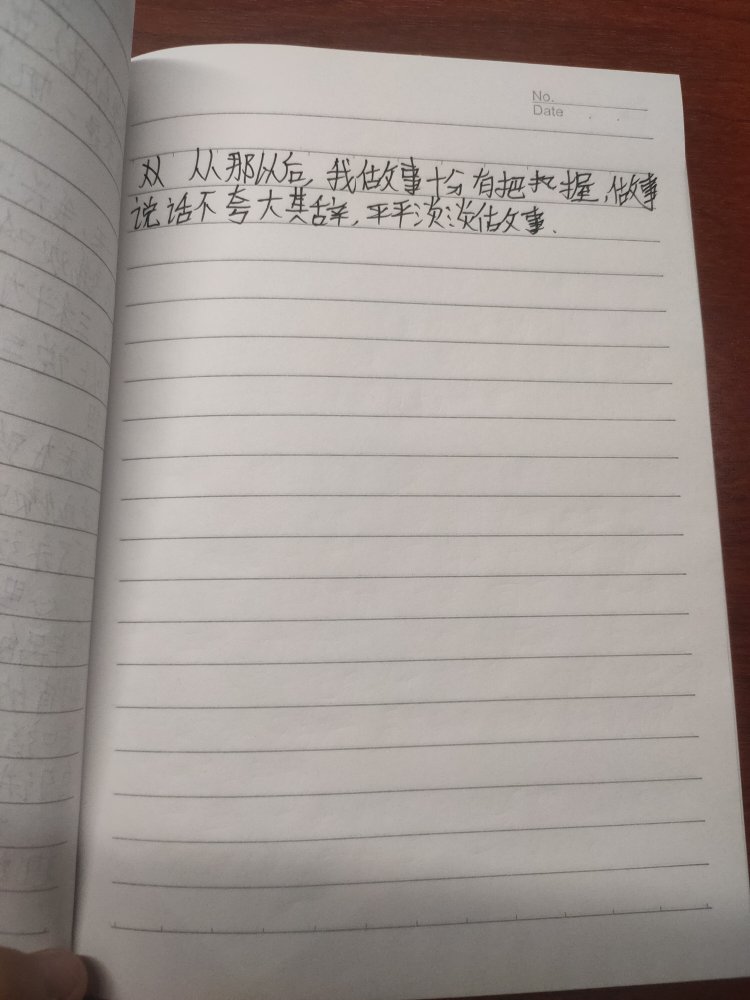 No.
Date
从那以后,我做事十分有把握,做事
说话不夸大其辞,平平淡淡做事.